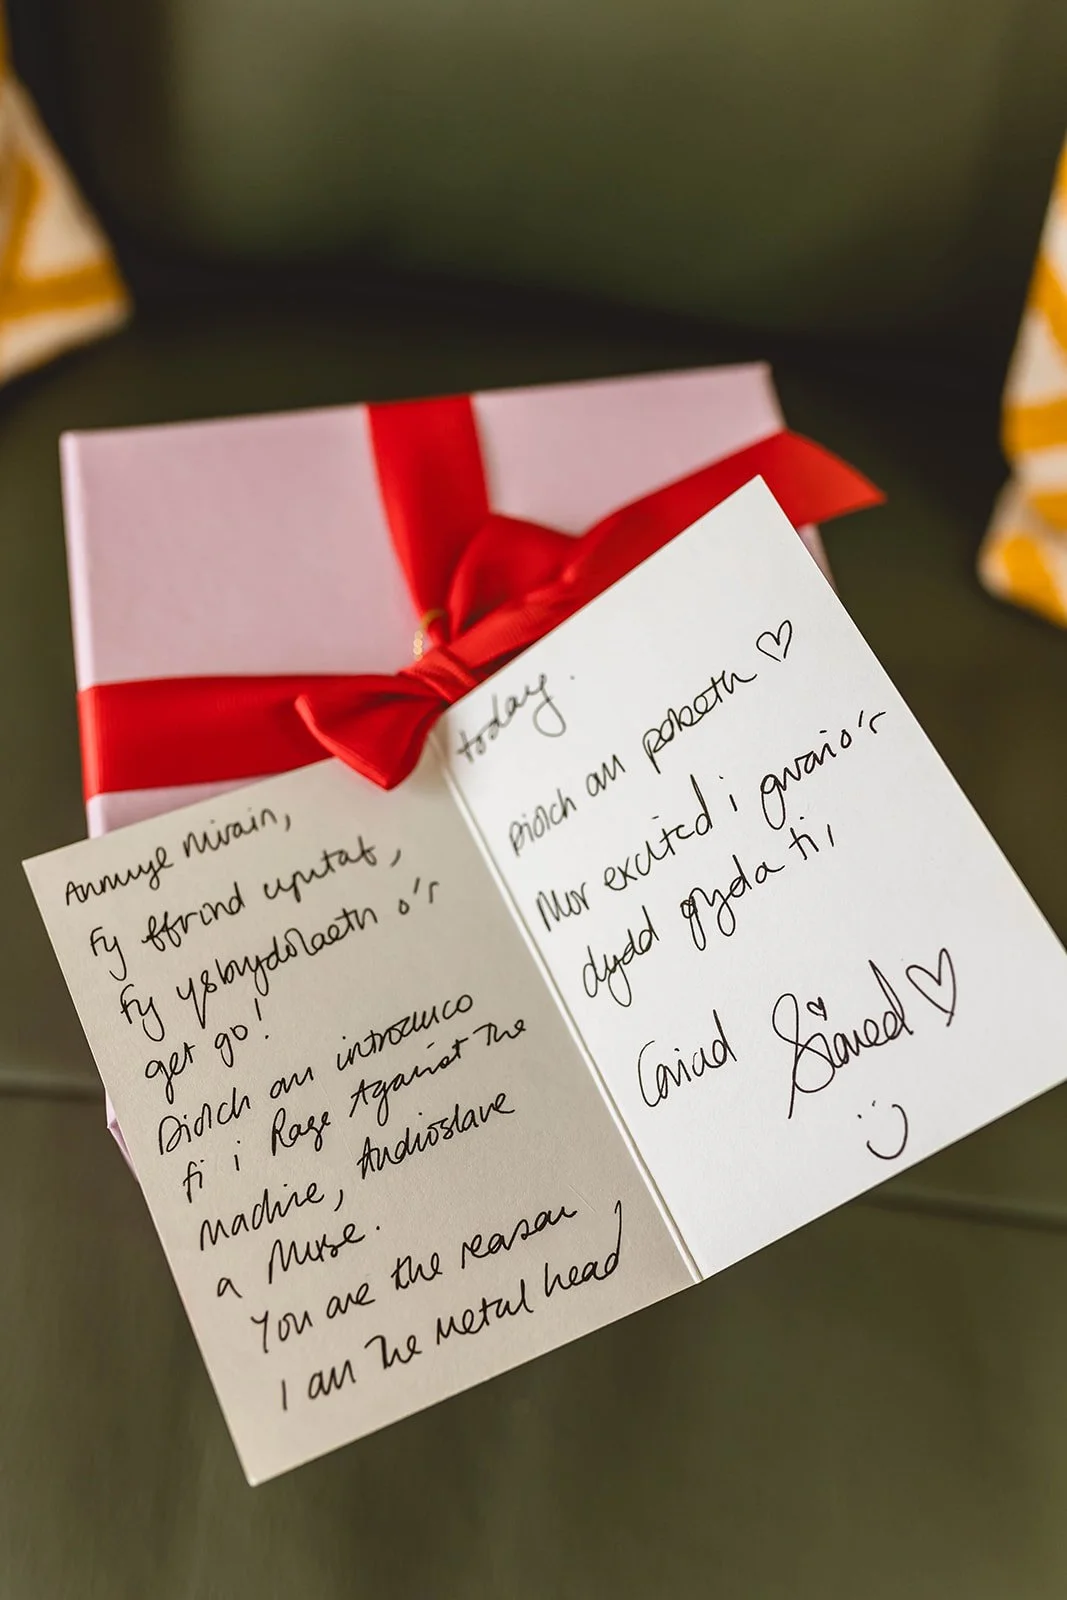 Annwyl Mirain,
Fy ffrind cyntaf,
fy ysbrydoliaeth o'r
get go!
Diolch am introducio
fi i Rage Against The
Machine, Audioslave
a Muse.
You are the reason
I am The Metal head
today.
Diolch am pobeth ♡
Mor excited i gwario'r
dydd gyda ti,
Cariad Sioned ♡